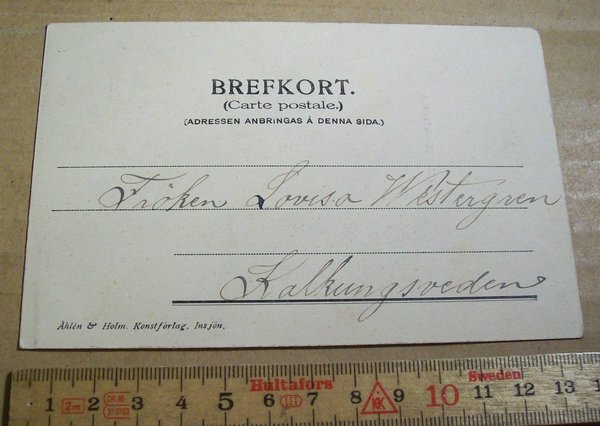 BREFKORT.
(Carte postale.)
(ADRESSEN ANBRINGAS Å DENNA SIDA.)
Fröken Lovisa Westergren
Kalkungsveden
Åhlén & Holm. Konstförlag. Insjön.
1 2m 2 OK 85 3 4 5 6 III 7 8 KK 9 10 11 12 13
Hultafors Sweden